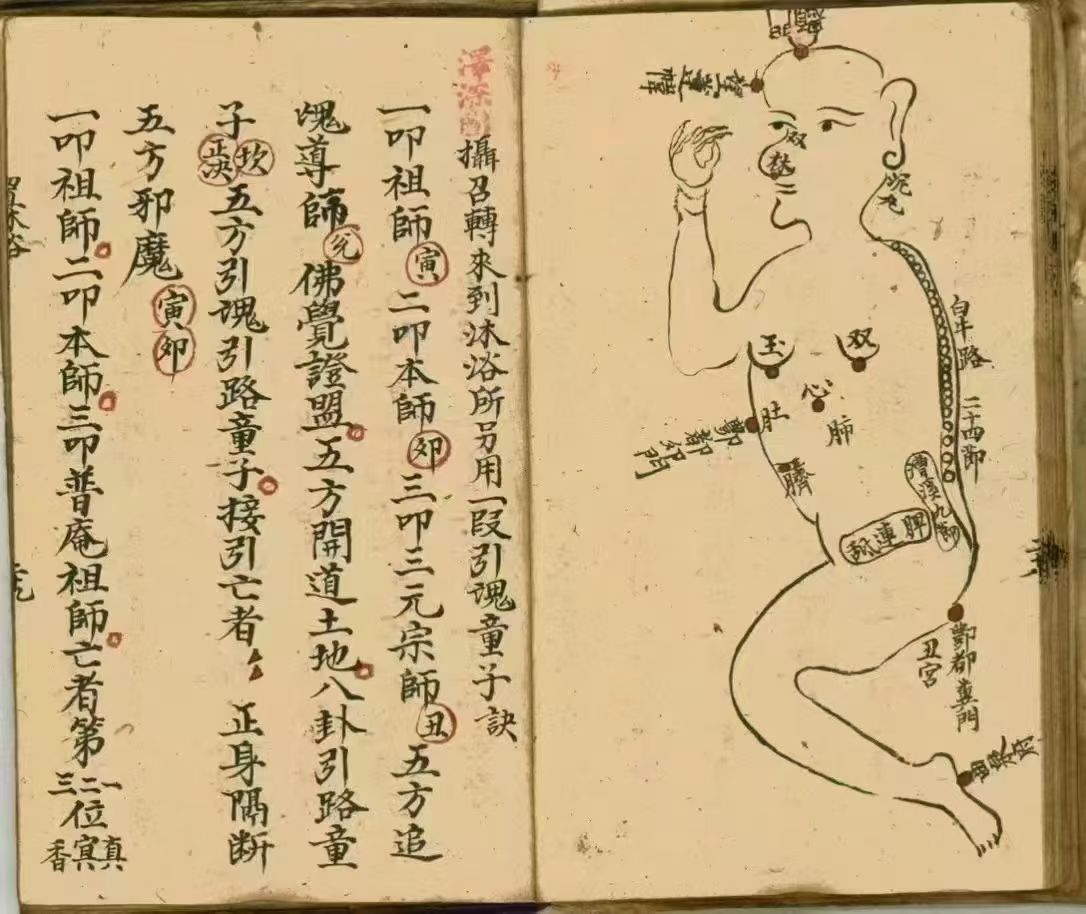 攝召轉來到沐浴所另用一段引魂童子訣
一叩祖師寅二叩本師卯三叩三元宗師丑五方追
魂導師兊佛覺證盟五方開道土地八卦引路童
子坎正决五方引魂引路童子接引亡者正身隔断
五方邪魔寅卯
一叩祖師二叩本師三叩普庵祖師亡者第一二三位真冥香
双
玉
双
心
肚
肺
臍
白牛路
二十四節
脾連
酆都
丑宮